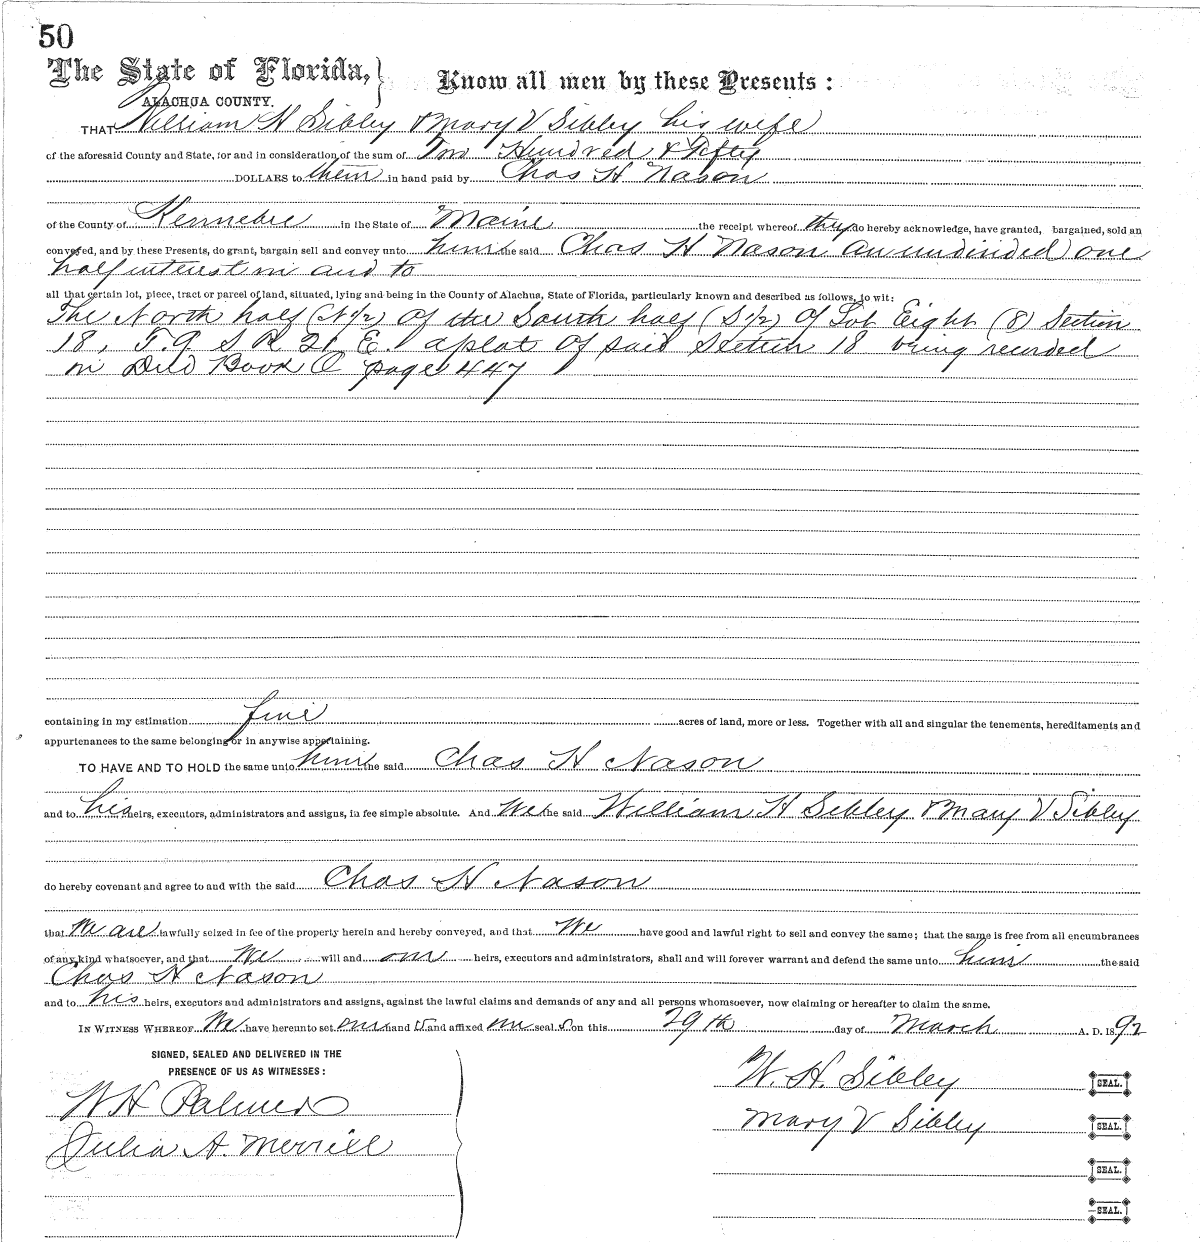 50
The State of Florida,
Know all men by these Presents :
ALACHUA COUNTY.
THAT William H Sibley & Mary V Sibley his wife
of the aforesaid County and State, for and in consideration of the sum of Two Hundred & Fifty
DOLLARS to them in hand paid by Chas H Nason
of the County of Kennebec in the State of Maine the receipt whereof they do hereby acknowledge, have granted, bargained, sold an
conveyed, and by these Presents, do grant, bargain sell and convey unto him the said Chas H Nason an undivided one
half interest in and to
all that certain lot, piece, tract or parcel of land, situated, lying and being in the County of Alachua, State of Florida, particularly known and described as follows, to wit:
The North half (N1/2) Of the South half (S1/2) Of Lot Eight (8) Section
18, T. 9 S R 21 E. a plat of said Section 18 being recorded
in Deed Book O page 447
containing in my estimation five acres of land, more or less. Together with all and singular the tenements, hereditaments and
appurtenances to the same belonging or in anywise appertaining.
TO HAVE AND TO HOLD the same unto him the said Chas H Nason
and to his heirs, executors, administrators and assigns, in fee simple absolute. And We the said William H Sibley & Mary V Sibley
do hereby covenant and agree to and with the said Chas H Nason
that We are lawfully seized in fee of the property herein and hereby conveyed, and that We have good and lawful right to sell and convey the same; that the same is free from all encumbrances
of any kind whatsoever, and that We will and our heirs, executors and administrators, shall and will forever warrant and defend the same unto him the said
Chas H Nason
and to his heirs, executors and administrators and assigns, against the lawful claims and demands of any and all persons whomsoever, now claiming or hereafter to claim the same.
IN WITNESS WHEREOF We have hereunto set our hand s and affixed our seal s on this 29th day of March A. D. 1892
SIGNED, SEALED AND DELIVERED IN THE
PRESENCE OF US AS WITNESSES :
W. H. Sibley SEAL.
W H Palmer
Mary V Sibley SEAL.
Julia A. Merrill
SEAL.
SEAL.